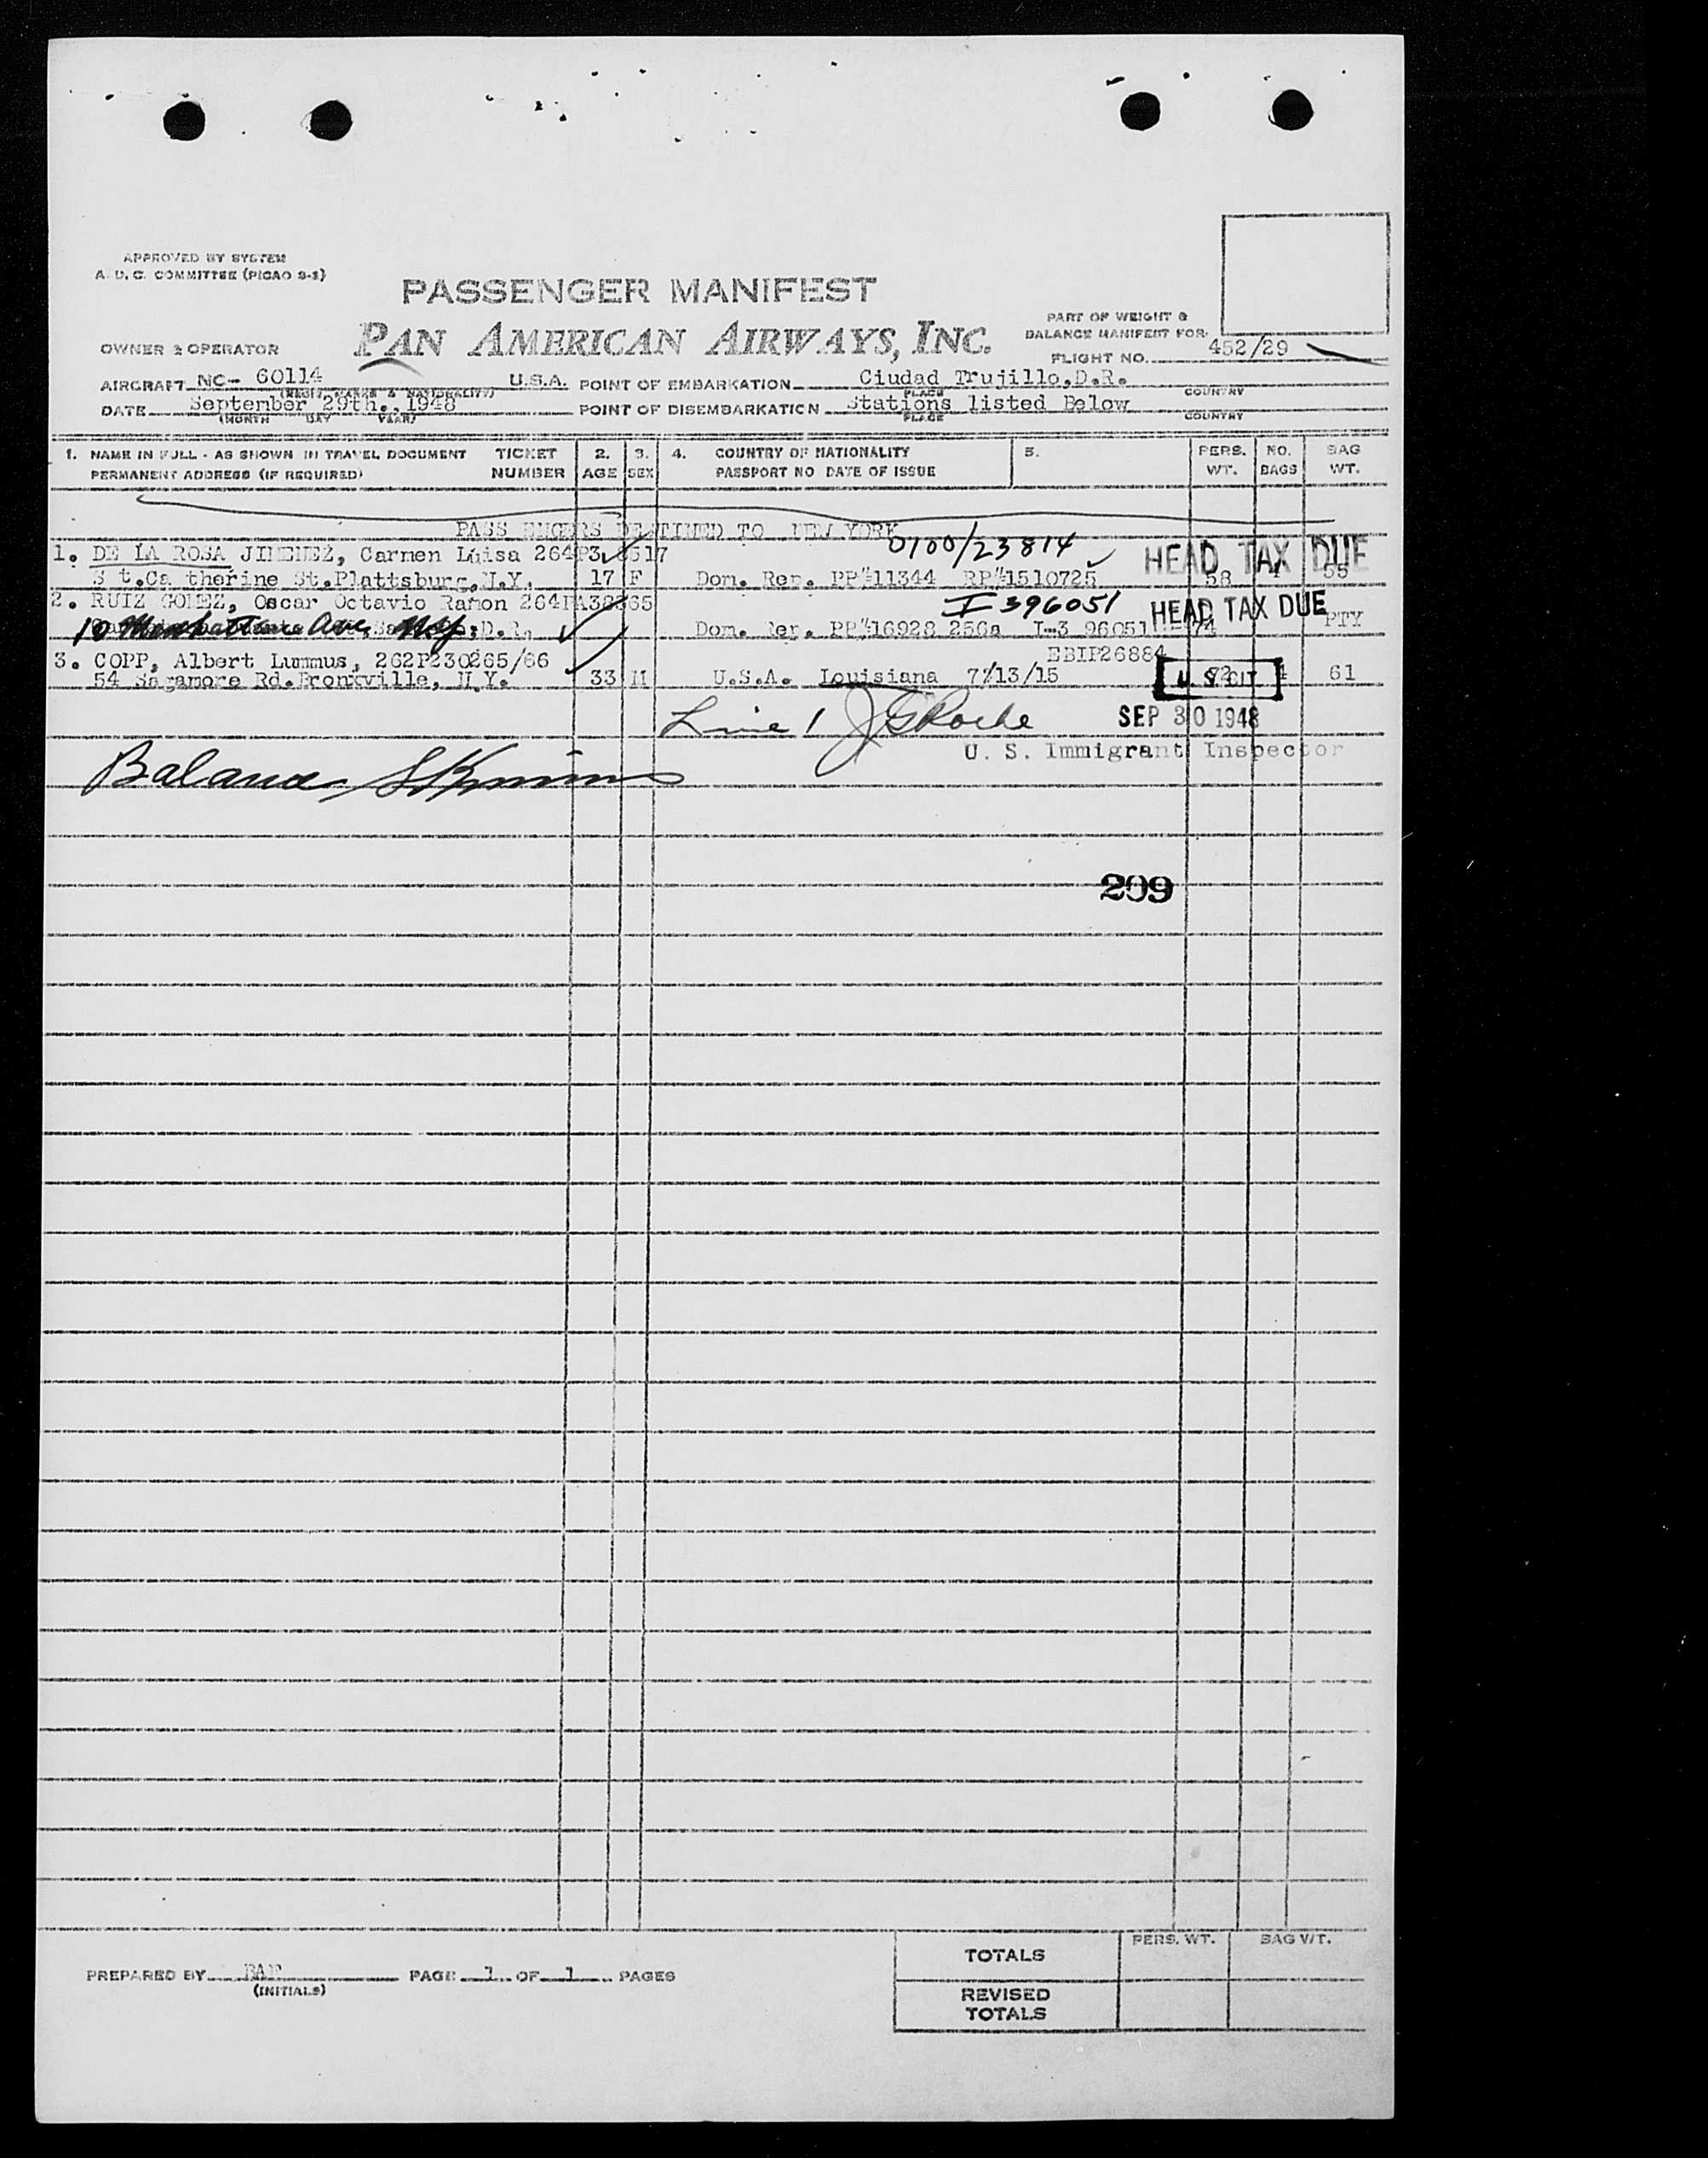 APPROVED BY SYSTEM
A. D. C. COMMITTEE (PICAO S-1)
PASSENGER MANIFEST
PAN AMERICAN AIRWAYS, INC.
PART OF WEIGHT &
BALANCE MANIFEST FOR
OWNER & OPERATOR
FLIGHT NO. 452/29
AIRCRAFT NC- 60114 U.S.A. POINT OF EMBARKATION Ciudad Trujillo,D.R.
(REGIS. MARKS & NATIONALITY) PLACE COUNTRY
DATE September 29th.,1948 POINT OF DISEMBARKATION Stations listed Below
(MONTH DAY YEAR) PLACE COUNTRY
1. NAME IN FULL - AS SHOWN IN TRAVEL DOCUMENT TICKET 2. 3. 4. COUNTRY OF NATIONALITY 5. PERS. NO. BAG
PERMANENT ADDRESS (IF REQUIRED) NUMBER AGE SEX PASSPORT NO DATE OF ISSUE WT. BAGS WT.
PASSENGERS DESTINED TO NEW YORK
0100/23814
1. DE LA ROSA JIMENEZ, Carmen Luisa HEAD TAX DUE
S t.Ca therine St.Plattsburg,N.Y. 17 F Dom. Rep. PP#11344 RP#1510725 58 55
2. RUIZ GOMEZ, Oscar Octavio Ramon I 396051 HEAD TAX DUE
10 Manhattan Ave, D.R. Dom. Rep. PP#16928 I-3 96051 74 PTY
3. COPP, Albert Lummus, 262P230265/66 EBIP26884
54 Sagamore Rd.Bronxville, N.Y. 33 M U.S.A. Louisiana 7/13/15 72 U. S. CIT. 61
Line 1 SEP 30 1948
U. S. Immigrant Inspector
Balance
209
PREPARED BY (INITIALS) PAGE 1 OF 1 PAGES
TOTALS PERS. WT. BAG WT.
REVISED
TOTALS